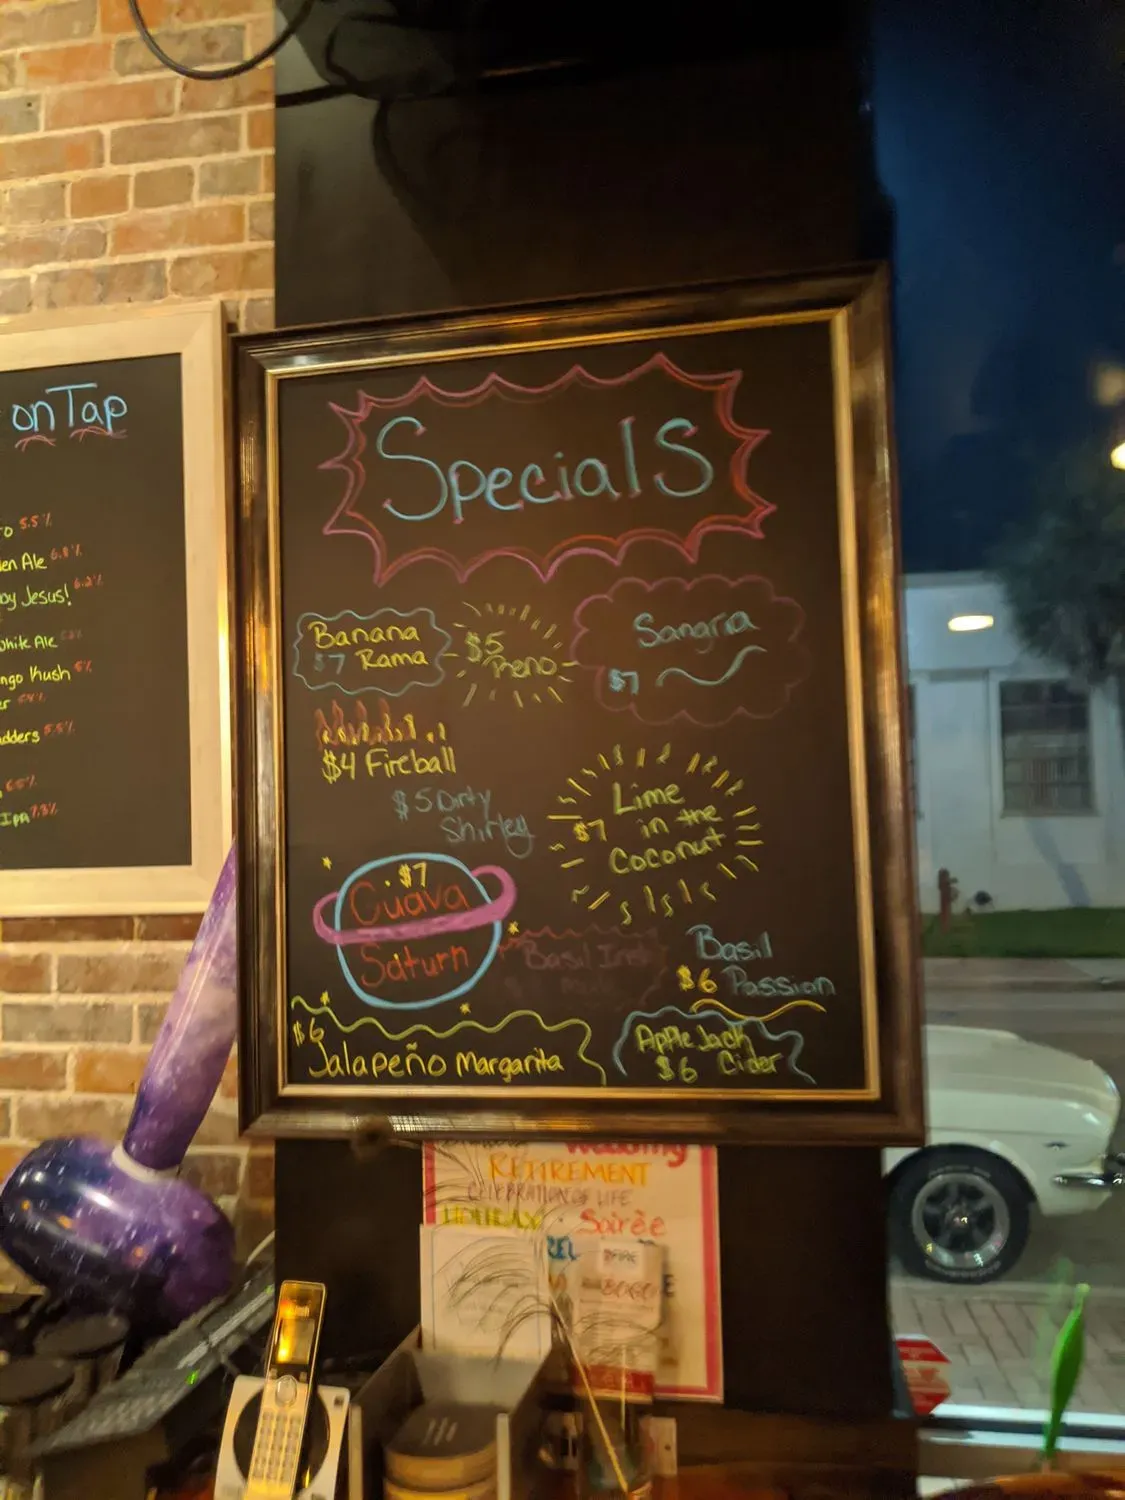 on Tap
5.5%
en Ale 6.8%
by Jesus! 6.2%
White Ale
ngo Kush 6%
er
adders 5.5%
65%
IPA 7.3%
Specials
Banana
$7 Rama
$5
Keno
Sangria
$7
$4 Fireball
$5 Dirty
Shirley
Lime
$7 in the
Coconut
$7
Guava
Saturn
Basil
Basil
$6 Passion
$6
Jalapeño Margarita
Apple Jack
$6 Cider
Wedding
RETIREMENT
CELEBRATION OF LIFE
HOLIDAY · Soirêe